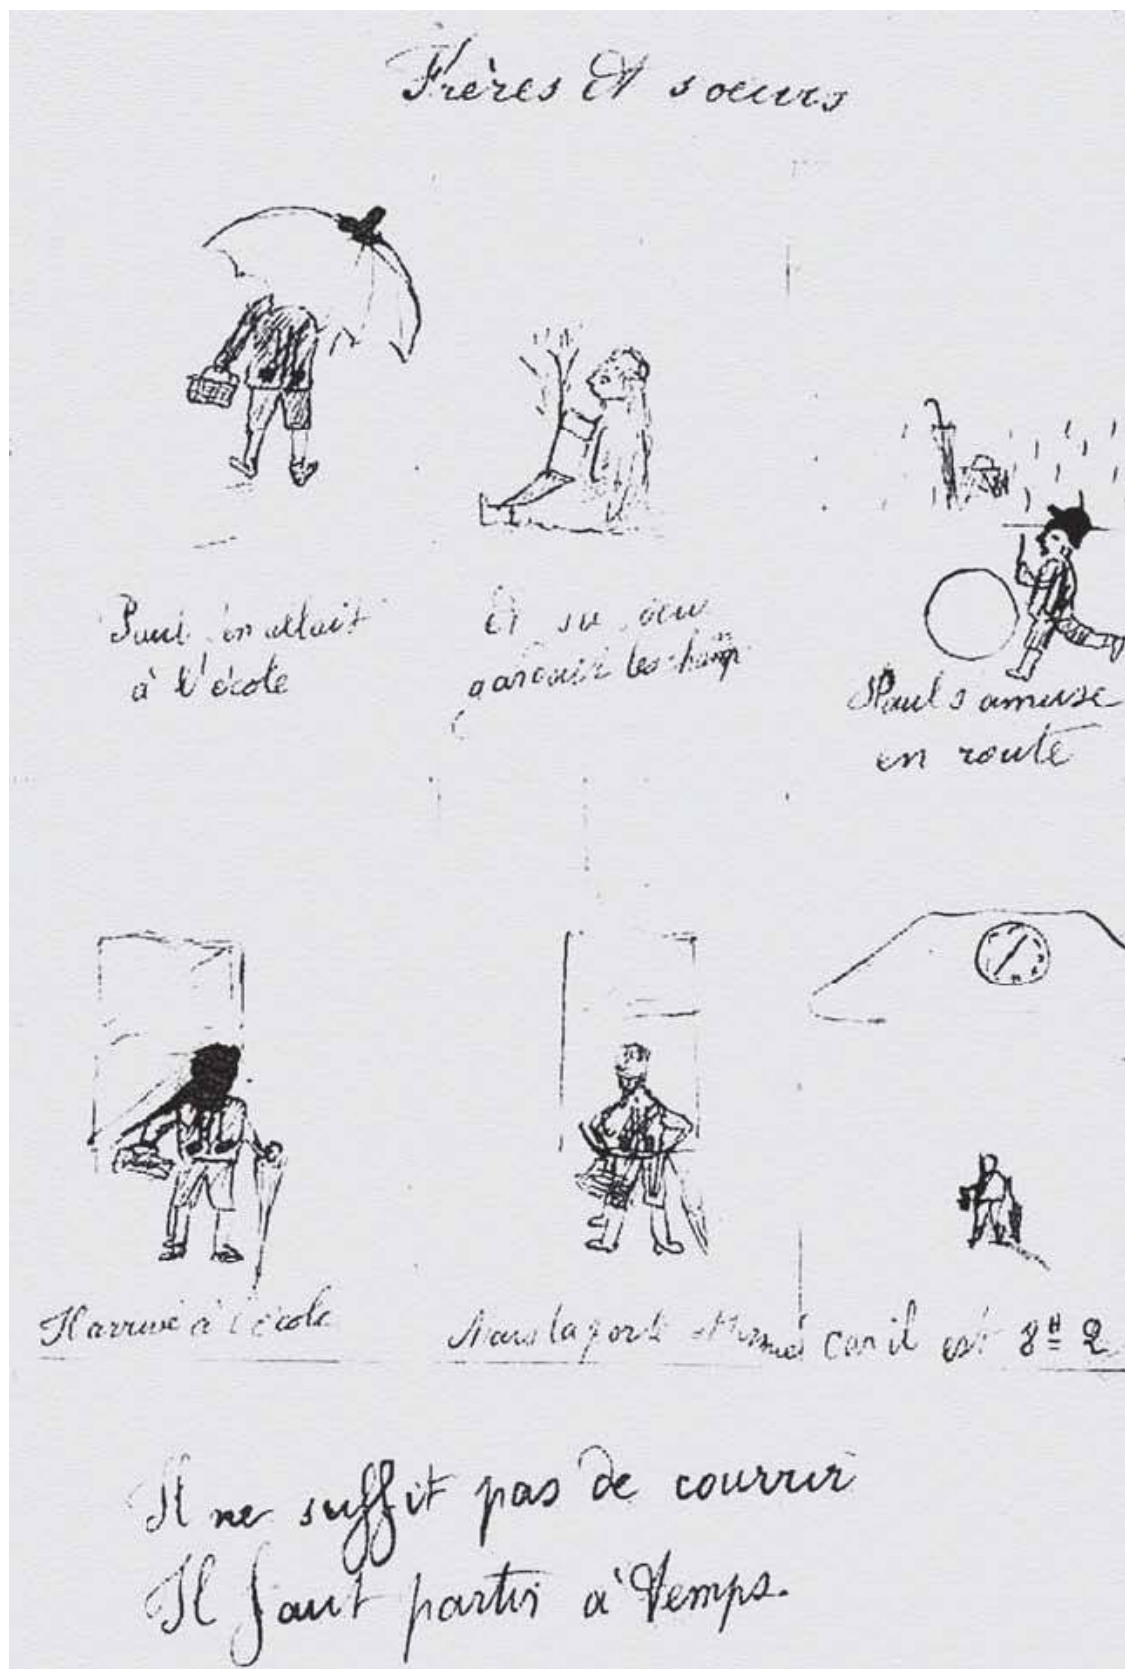 Frères Et soeurs
Paul s'en allait
à l'école
Et sa
les champ
Paul s'amuse
en route
Il arrive à l'école
Mais la porte car il est 8H 2
Il ne suffit pas de courrir
Il faut partir à temps.